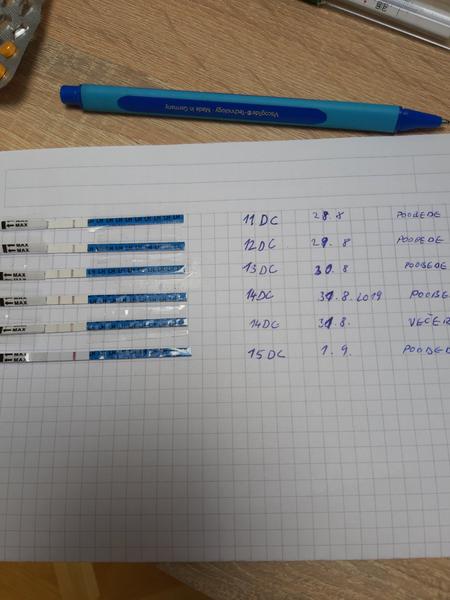 Viscoglide®-Technology - Made in Germany
MAX 11 DC 28.8 POOBEDE
MAX 12 DC 29.8 POOBEDE
MAX 13 DC 30.8 POOBEDE
MAX 14 DC 31.8.2019 POOBE
MAX 14 DC 31.8. VEČER
MAX 15 DC 1.9. POOBED